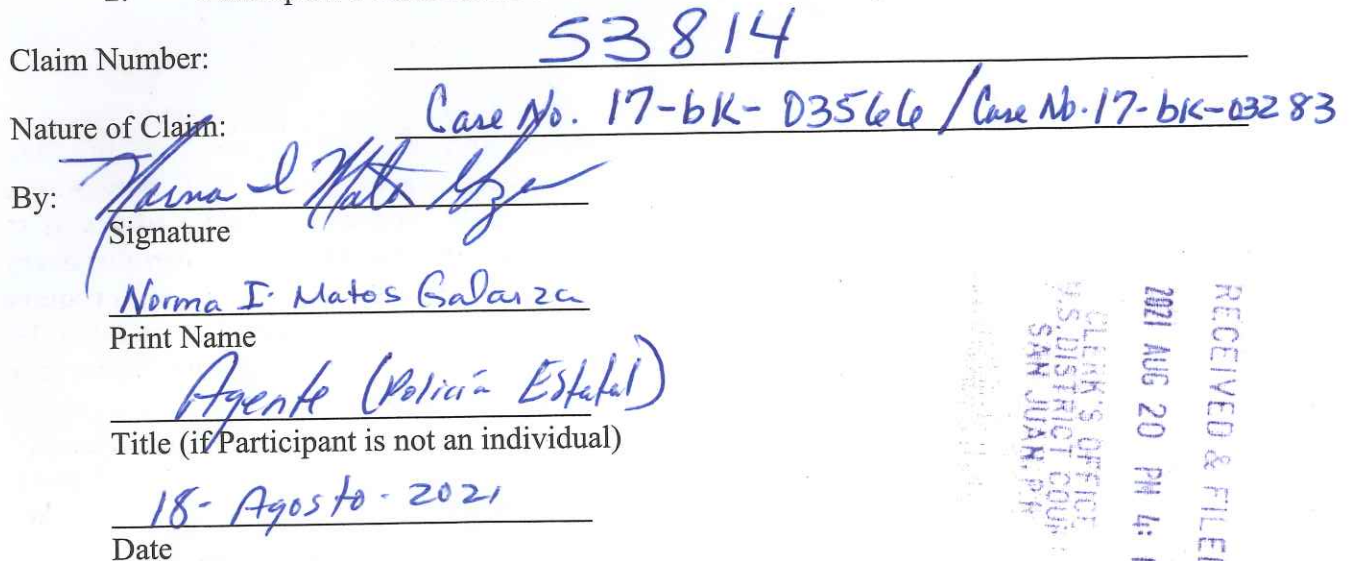 Claim Number: 53814
Nature of Claim: Case No. 17-bk-03566 / Case No. 17-bk-03283
By:
Signature
Norma I. Matos Galarza
Print Name
Agente (Policía Estatal)
Title (if Participant is not an individual)
18-Agosto-2021
Date
RECEIVED & FILED
2021 AUG 20 PM 4:
CLERK'S OFFICE
U.S. DISTRICT COUR
SAN JUAN, P.R.